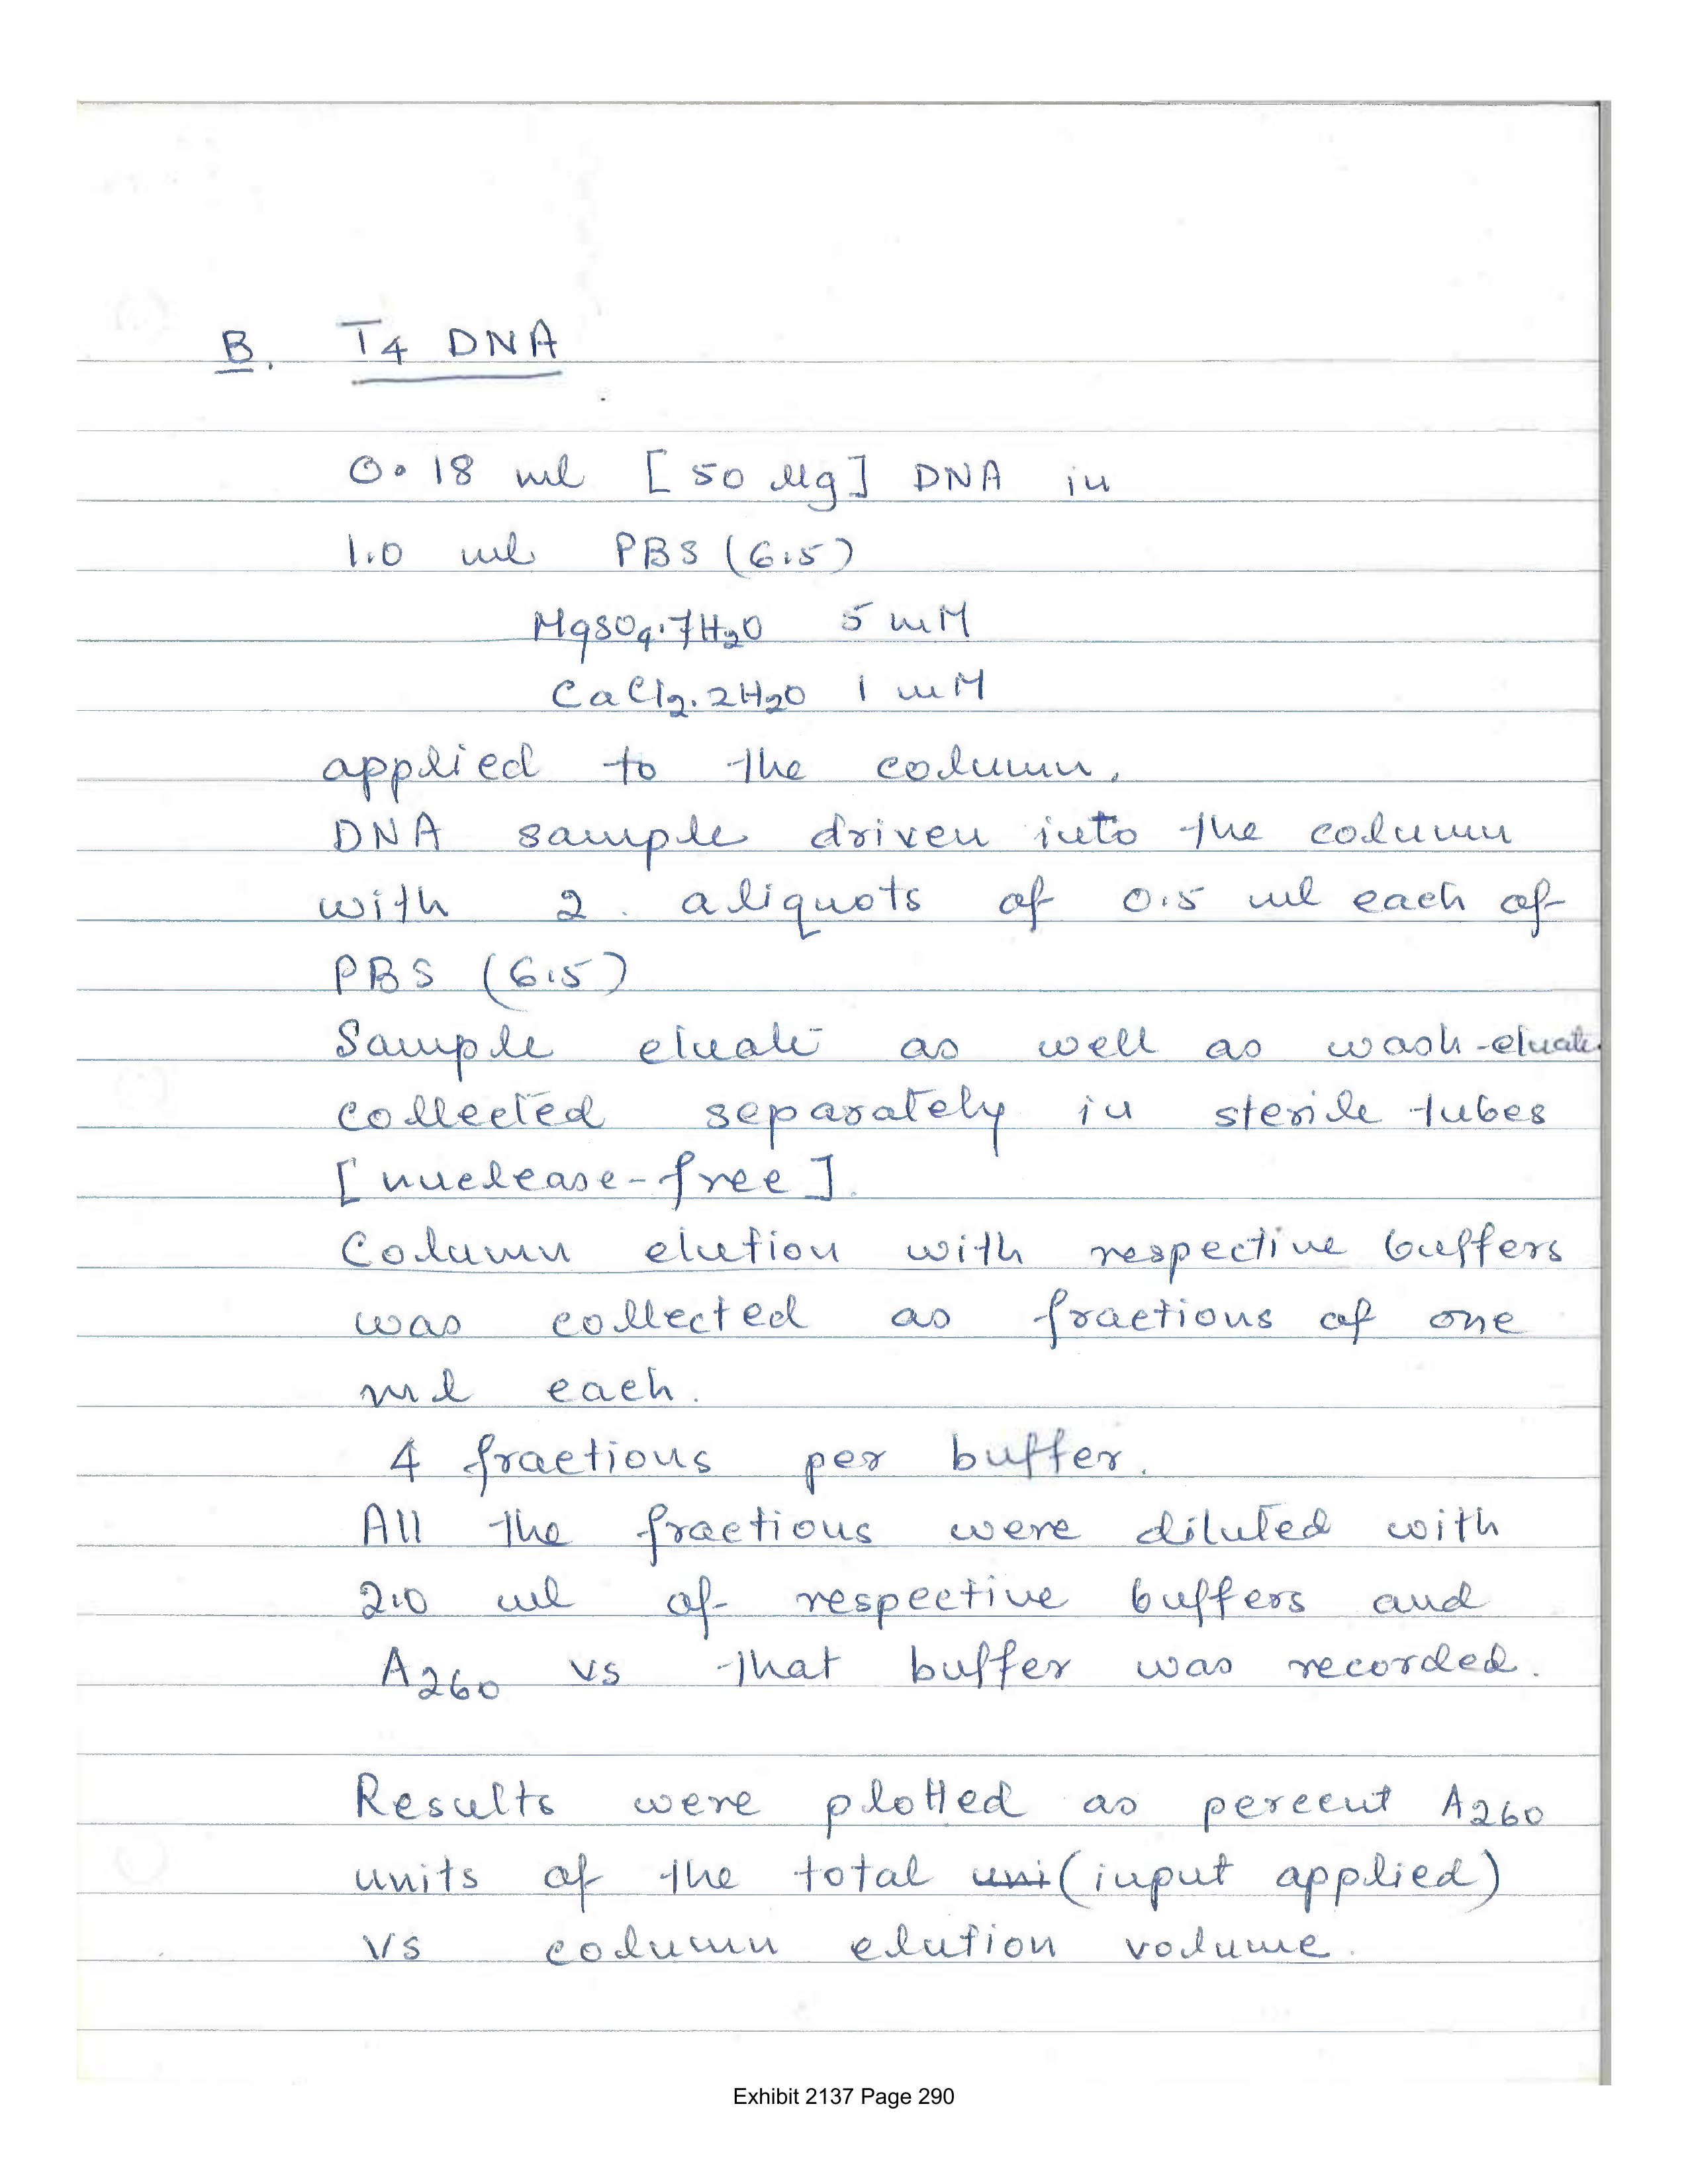 B. T4 DNA
0.18 ml [50 µg] DNA in
1.0 ml PBS (6.5)
MgSO4.7H2O 5 mM
CaCl2.2H2O 1 mM
applied to the column.
DNA sample driven into the column
with 2 aliquots of 0.5 ml each of
PBS (6.5)
Sample eluate as well as wash-eluate
collected separately in sterile tubes
[nuclease-free].
Column elution with respective buffers
was collected as fractions of one
ml each.
4 fractions per buffer.
All the fractions were diluted with
2.0 ml of respective buffers and
A260 vs that buffer was recorded.
Results were plotted as percent A260
units of the total uni (input applied)
vs column elution volume.
Exhibit 2137 Page 290